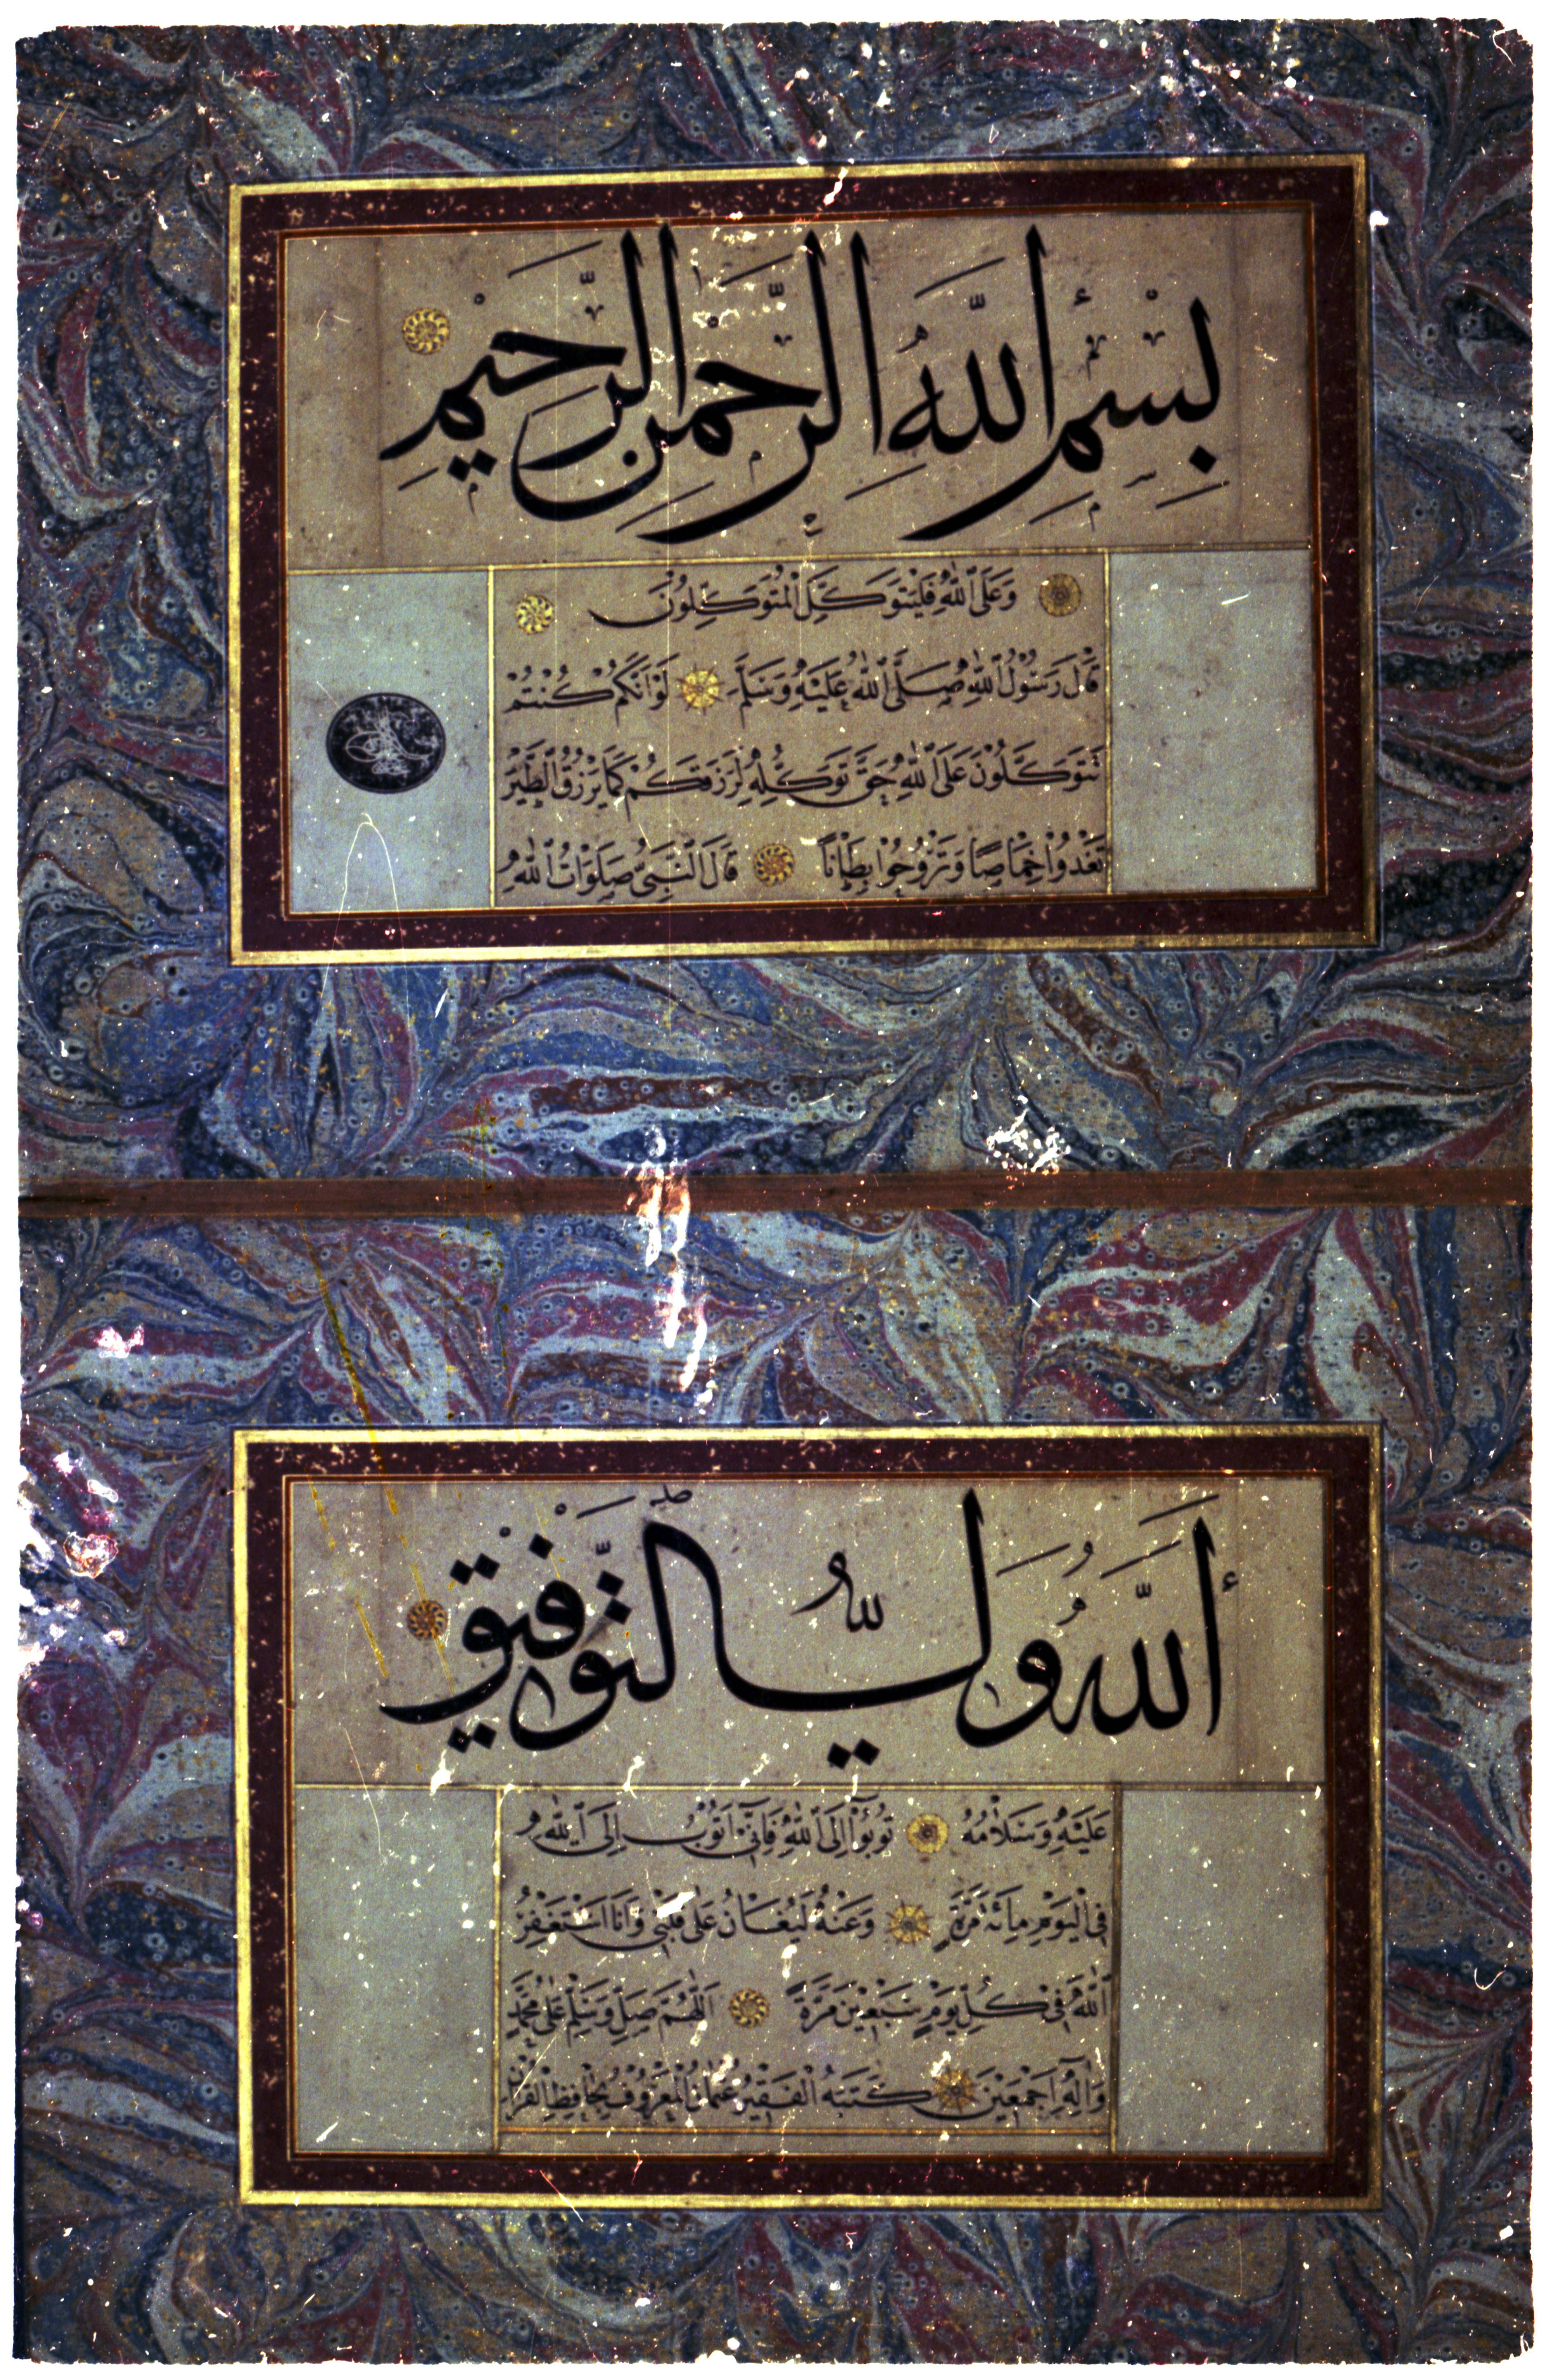 بِسْمِ اللَّهِ الرَّحْمَنِ الرَّحِيمِ
وَعَلَى اللّٰهِ فَلْيَتَوَكَّلِ الْمُتَوَكِّلُونَ
قَالَ رَسُولُ اللّٰهِ صَلَّى اللّٰهُ عَلَيْهِ وَسَلَّمَ لَوْ اَنَّكُمْ كُنْتُمْ
تَتَوَكَّلُونَ عَلَى اللّٰهِ حَقَّ تَوَكُّلِهِ لَرَزَقَكُمْ كَمَا يَرْزُقُ الطَّيْرَ
تَغْدُوا خِمَاصًا وَتَرُوحُوا بِطَانًا قَالَ النَّبِيُّ صَلَوَاتُ اللّٰهِ
أَللَّهُ وَلِيُّ التَّوْفِيقِ
عَلَيْهِ وَسَلَامُهُ تُوبُوا اِلَى اللّٰهِ فَاِنِّي اَتُوبُ اِلَى اللّٰهِ
فِي الْيَوْمِ مِائَةَ مَرَّةٍ وَعَنْهُ لَيُغَانُ عَلَى قَلْبِي وَاَنَا اَسْتَغْفِرُ
اللّٰهَ فِي كُلِّ يَوْمٍ سَبْعِينَ مَرَّةً اَللّٰهُمَّ صَلِّ وَسَلِّمْ عَلَى مُحَمَّدٍ
وَاٰلِهِ اَجْمَعِينَ كَتَبَهُ الْفَقِيرُ عُثْمَانُ الْمَعْرُوفُ بِحَافِظِ الْقُرْآنِ